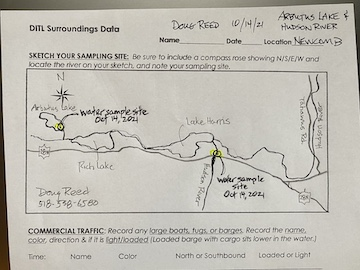 DITL Surroundings Data
Name Doug Reed Date 10/14/21 Location Arbutus Lake & Hudson River Newcomb
SKETCH YOUR SAMPLING SITE: Be sure to include a compass rose showing N/S/E/W and
locate the river on your sketch, and note your sampling site.
N
Arbutus Lake
water sample site
Oct 14, 2021
Lake Harris
Rich Lake
Hudson River
water sample
site
Oct 14, 2021
Doug Reed
COMMERCIAL TRAFFIC: Record any large boats, tugs, or barges. Record the name,
color, direction & if it is light/loaded (Loaded barge with cargo sits lower in the water.)
Time: Name Color North or Southbound Loaded or Light